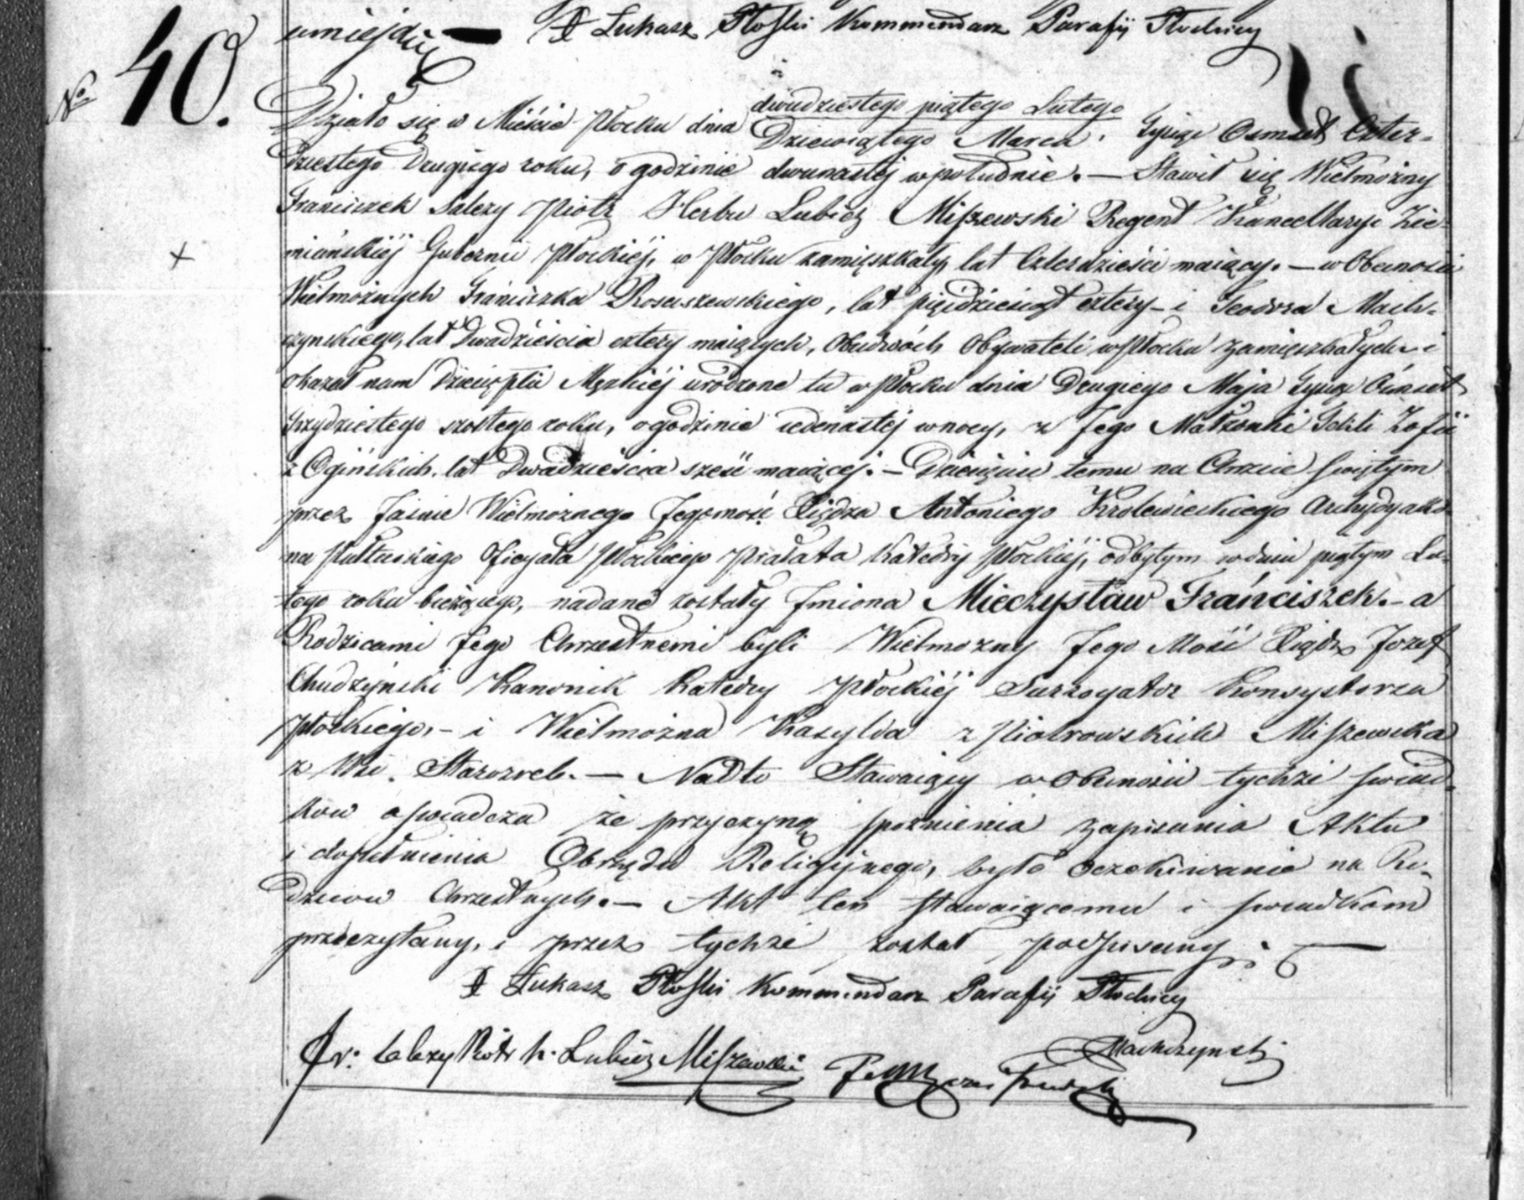 umiejący — X Łukasz Płoski Kommendarz Parafij Płockiey
No 40.
dwudziestego piątego Lutego
Działo się w Mieście Płocku dnia Dziewiątego Marca Tysiąc Osmset Czter-
dziestego Drugiego roku, o godzinie dwunastej w południe. — Stawił się Wielmożny
Franciszek Salezy Piotr Herbu Lubicz Miszewski Regent Kancellaryi Zie-
miańskiéj Gubernii Płockiéj, w Płocku zamięszkały, lat Czterdzieści maiący. — w Obecności
Wielmożnych Franciszka Rościszewskiego, lat pięćdziesiąt cztery — i Teodora Mach-
czyńskiego, lat Dwadzieścia cztery maiących, Obudwóch Obywateli w Płocku zamięszkałych — i
okazał nam Dziecię płci Męzkiéj urodzone tu w Płocku dnia Drugiego Maja Tysiąc Ośmset
trzydziestego szóstego roku, o godzinie iedenastéj w nocy, z Jego Małżonki Tekli Zofii
z Ogińskich lat Dwadzieścia sześć maiącej. — Dziecięciu temu na Chrzcie Świętym
przez Jaśnie Wielmożnego Jegomość Xiędza Antoniego Krolewieckiego Archydyako-
na Pułtuskiego Oficyała Płockiego Prałata Katedry Płockiéj, odbytym w dniu piątym Lu-
tego roku bieżącego, nadane zostały Imiona Mieczysław Franciszek. — a
Rodzicami Jego Chrzestnemi byli Wielmożny Jego Mość Xiądz Jozef
Chudzyński Kanonik Katedry Płockiéj Surrogator Konsystorza
Płockiego, — i Wielmożna Kasylda z Piotrowskich Miszewska
z Wsi Starozreb. — Nadto Stawaiący w Obecności tychże świad-
ków oświadcza że przyczyną spoźnienia zapisania Aktu
i dopełnienia Obrzędu Religijnego, było oczekiwanie na Ro-
dziców Chrzestnych. — Akt ten stawaiącemu i świadkom
przeczytany, i przez tychże został podpisany. —
X Łukasz Płoski Kommendarz Parafij Płockiey
Fr: Salezy Piotr h. Lubicz Miszewski
Machczyński